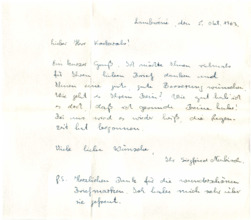 den 5. Okt. 1983
Lieber Herr
Ein kurzer Gruß. Ich möchte Ihnen vielmals
für Ihren lieben Brief danken und
Ihnen eine gute gute Besserung wünschen
Wie geht es Ihrem Bein? Wie gut hab ich
es doch, daß ich gesunde Beine habe!
Bei uns wird es wieder heiß, die Regen-
zeit hat begonnen.
Viele liebe Wünsche
Ihr Siegfried
PS. Herzlichen Dank für die wunderschönen
Briefmarken. Ich habe mich sehr über
sie gefreut.